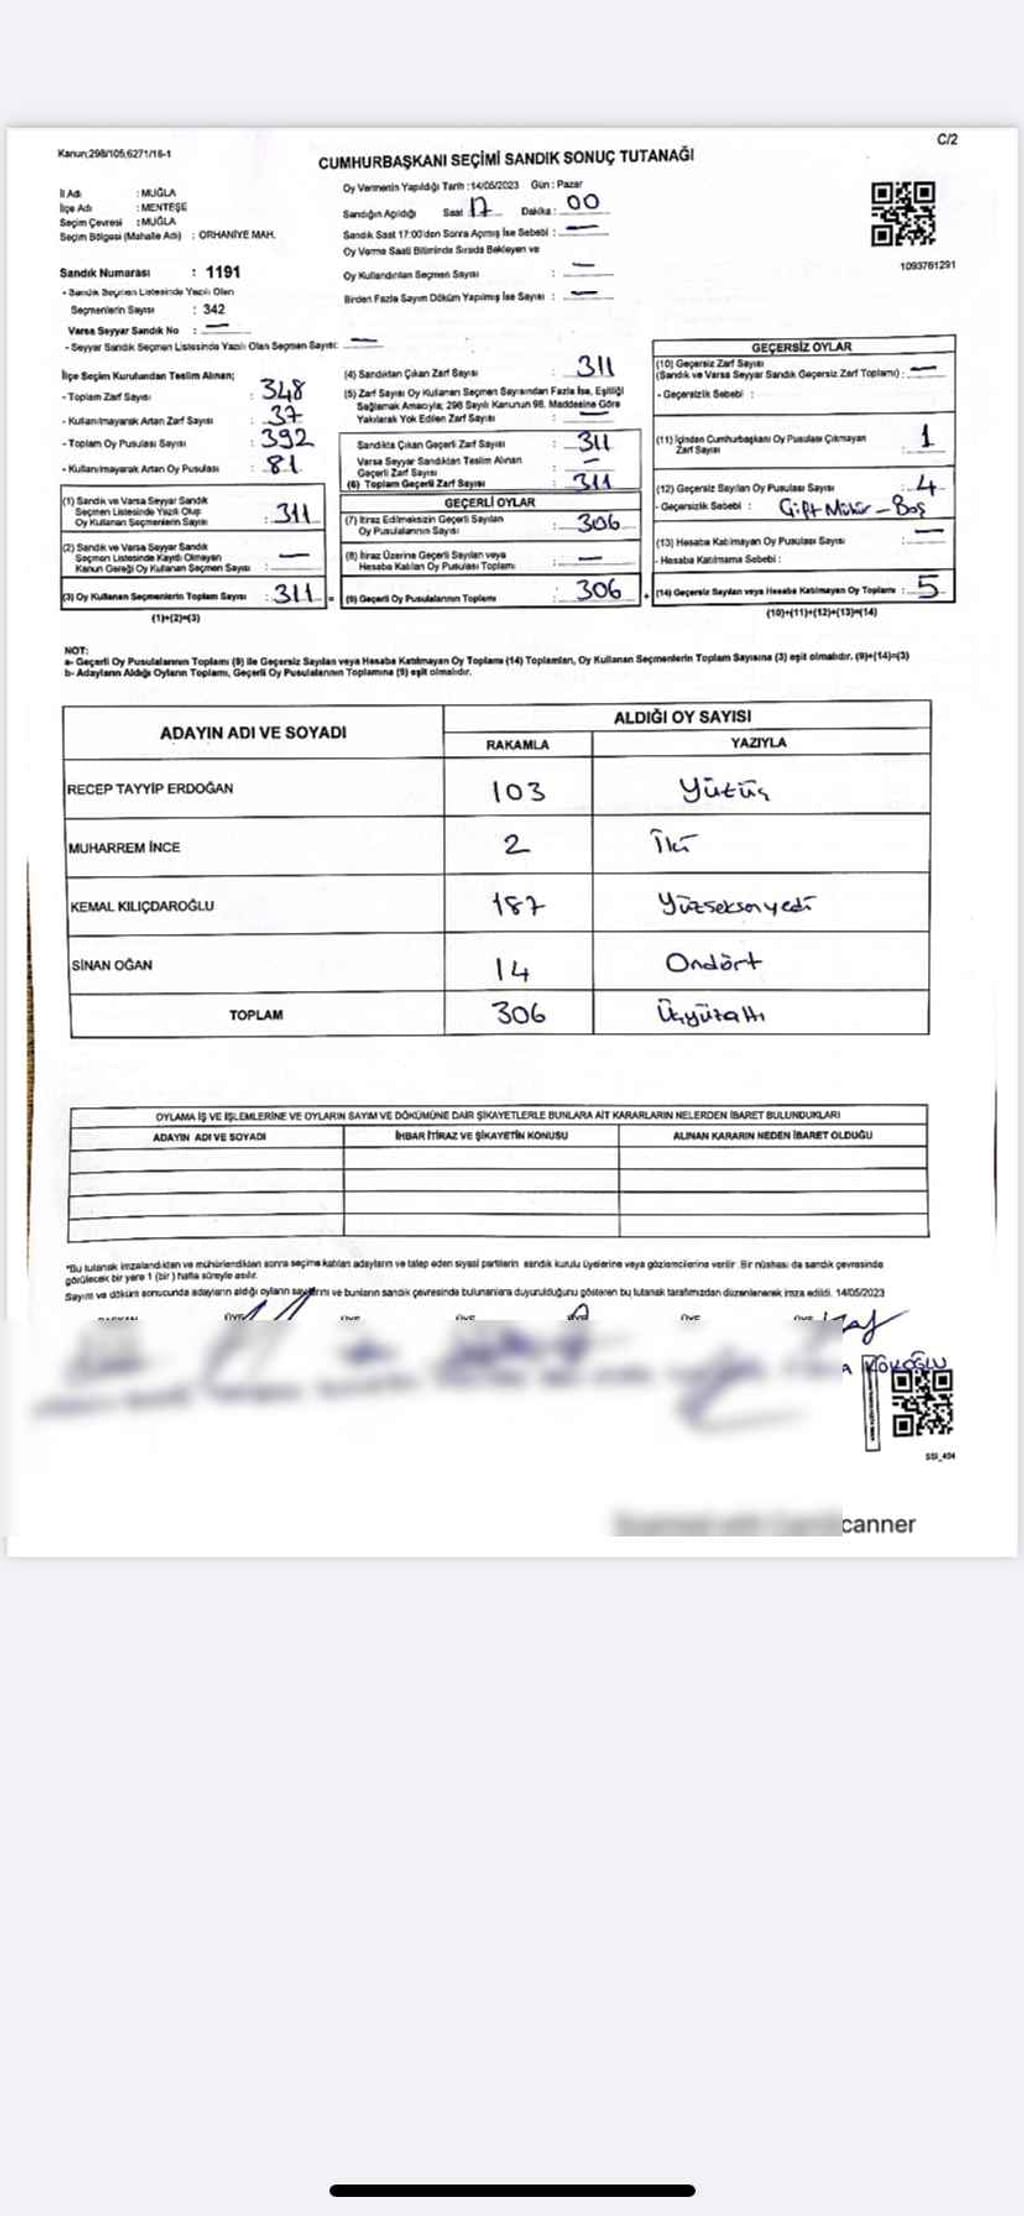 Kanun;298/105,6271/16-1
C/2
CUMHURBAŞKANI SEÇİMİ SANDIK SONUÇ TUTANAĞI
İl Adı : MUĞLA
İlçe Adı : MENTEŞE
Seçim Çevresi : MUĞLA
Seçim Bölgesi (Mahalle Adı) : ORHANİYE MAH.
Oy Vermenin Yapıldığı Tarih : 14/05/2023 Gün : Pazar
Sandığın Açıldığı Saat 17 Dakika : 00
Sandık Saat 17:00'den Sonra Açılmış İse Sebebi : —
Oy Verme Saati Bitiminde Sırada Bekleyen ve
Oy Kullandırılan Seçmen Sayısı : —
Birden Fazla Sayım Döküm Yapılmış İse Sayısı : —
1093761291
Sandık Numarası : 1191
- Sandık Seçmen Listesinde Yazılı Olan
Seçmenlerin Sayısı : 342
Varsa Seyyar Sandık No : —
- Seyyar Sandık Seçmen Listesinde Yazılı Olan Seçmen Sayısı: —
İlçe Seçim Kurulundan Teslim Alınan;
- Toplam Zarf Sayısı : 348
- Kullanılmayarak Artan Zarf Sayısı : 37
- Toplam Oy Pusulası Sayısı : 392
- Kullanılmayarak Artan Oy Pusulası : 81
(1) Sandık ve Varsa Seyyar Sandık
Seçmen Listesinde Yazılı Olup
Oy Kullanan Seçmenlerin Sayısı : 311
(2) Sandık ve Varsa Seyyar Sandık
Seçmen Listesinde Kaydı Olmayan
Kanun Gereği Oy Kullanan Seçmen Sayısı : —
(3) Oy Kullanan Seçmenlerin Toplam Sayısı : 311 =
(1)+(2)=(3)
(4) Sandıktan Çıkan Zarf Sayısı : 311
(5) Zarf Sayısı Oy Kullanan Seçmen Sayısından Fazla İse, Eşitliği
Sağlamak Amacıyla; 298 Sayılı Kanunun 98. Maddesine Göre
Yakılarak Yok Edilen Zarf Sayısı : —
Sandıkta Çıkan Geçerli Zarf Sayısı : 311
Varsa Seyyar Sandıktan Teslim Alınan
Geçerli Zarf Sayısı : —
(6) Toplam Geçerli Zarf Sayısı : 311
GEÇERLİ OYLAR
(7) İtiraz Edilmeksizin Geçerli Sayılan
Oy Pusulalarının Sayısı : 306
(8) İtiraz Üzerine Geçerli Sayılan veya
Hesaba Katılan Oy Pusulası Toplamı : —
(9) Geçerli Oy Pusulalarının Toplamı : 306 +
GEÇERSİZ OYLAR
(10) Geçersiz Zarf Sayısı
(Sandık ve Varsa Seyyar Sandık Geçersiz Zarf Toplamı) : —
- Geçersizlik Sebebi :
(11) İçinden Cumhurbaşkanı Oy Pusulası Çıkmayan
Zarf Sayısı : 1
(12) Geçersiz Sayılan Oy Pusulası Sayısı : 4
- Geçersizlik Sebebi : Çift Mühür - Boş
(13) Hesaba Katılmayan Oy Pusulası Sayısı : —
- Hesaba Katılmama Sebebi :
(14) Geçersiz Sayılan veya Hesaba Katılmayan Oy Toplamı : 5
(10)+(11)+(12)+(13)=(14)
NOT:
a- Geçerli Oy Pusulalarının Toplamı (9) ile Geçersiz Sayılan veya Hesaba Katılmayan Oy Toplamı (14) Toplamları, Oy Kullanan Seçmenlerin Toplam Sayısına (3) eşit olmalıdır. (9)+(14)=(3)
b- Adayların Aldığı Oyların Toplamı, Geçerli Oy Pusulalarının Toplamına (9) eşit olmalıdır.
ADAYIN ADI VE SOYADI
ALDIĞI OY SAYISI
RAKAMLA YAZIYLA
RECEP TAYYİP ERDOĞAN 103 Yüzüç
MUHARREM İNCE 2 İki
KEMAL KILIÇDAROĞLU 187 Yüzseksenyedi
SİNAN OĞAN 14 Ondört
TOPLAM 306 Üçyüzaltı
OYLAMA İŞ VE İŞLEMLERİNE VE OYLARIN SAYIM VE DÖKÜMÜNE DAİR ŞİKAYETLERLE BUNLARA AİT KARARLARIN NELERDEN İBARET BULUNDUKLARI
ADAYIN ADI VE SOYADI İHBAR İTİRAZ VE ŞİKAYETİN KONUSU ALINAN KARARIN NEDEN İBARET OLDUĞU
*Bu tutanak imzalandıktan ve mühürlendikten sonra seçime katılan adayların ve talep eden siyasi partilerin sandık kurulu üyelerine veya gözlemcilerine verilir. Bir nüshası da sandık çevresinde
görülecek bir yere 1 (bir) hafta süreyle asılır.
Sayım ve döküm sonucunda adayların aldığı oyların sayılarını ve bunların sandık çevresinde bulunanlara duyurulduğunu gösteren bu tutanak tarafımızdan düzenlenerek imza edildi. 14/05/2023
canner